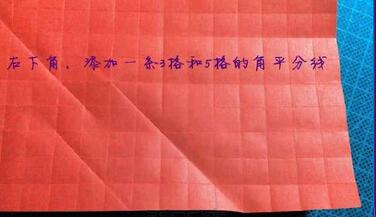 右下角，添加一条3格和5格的角平分线